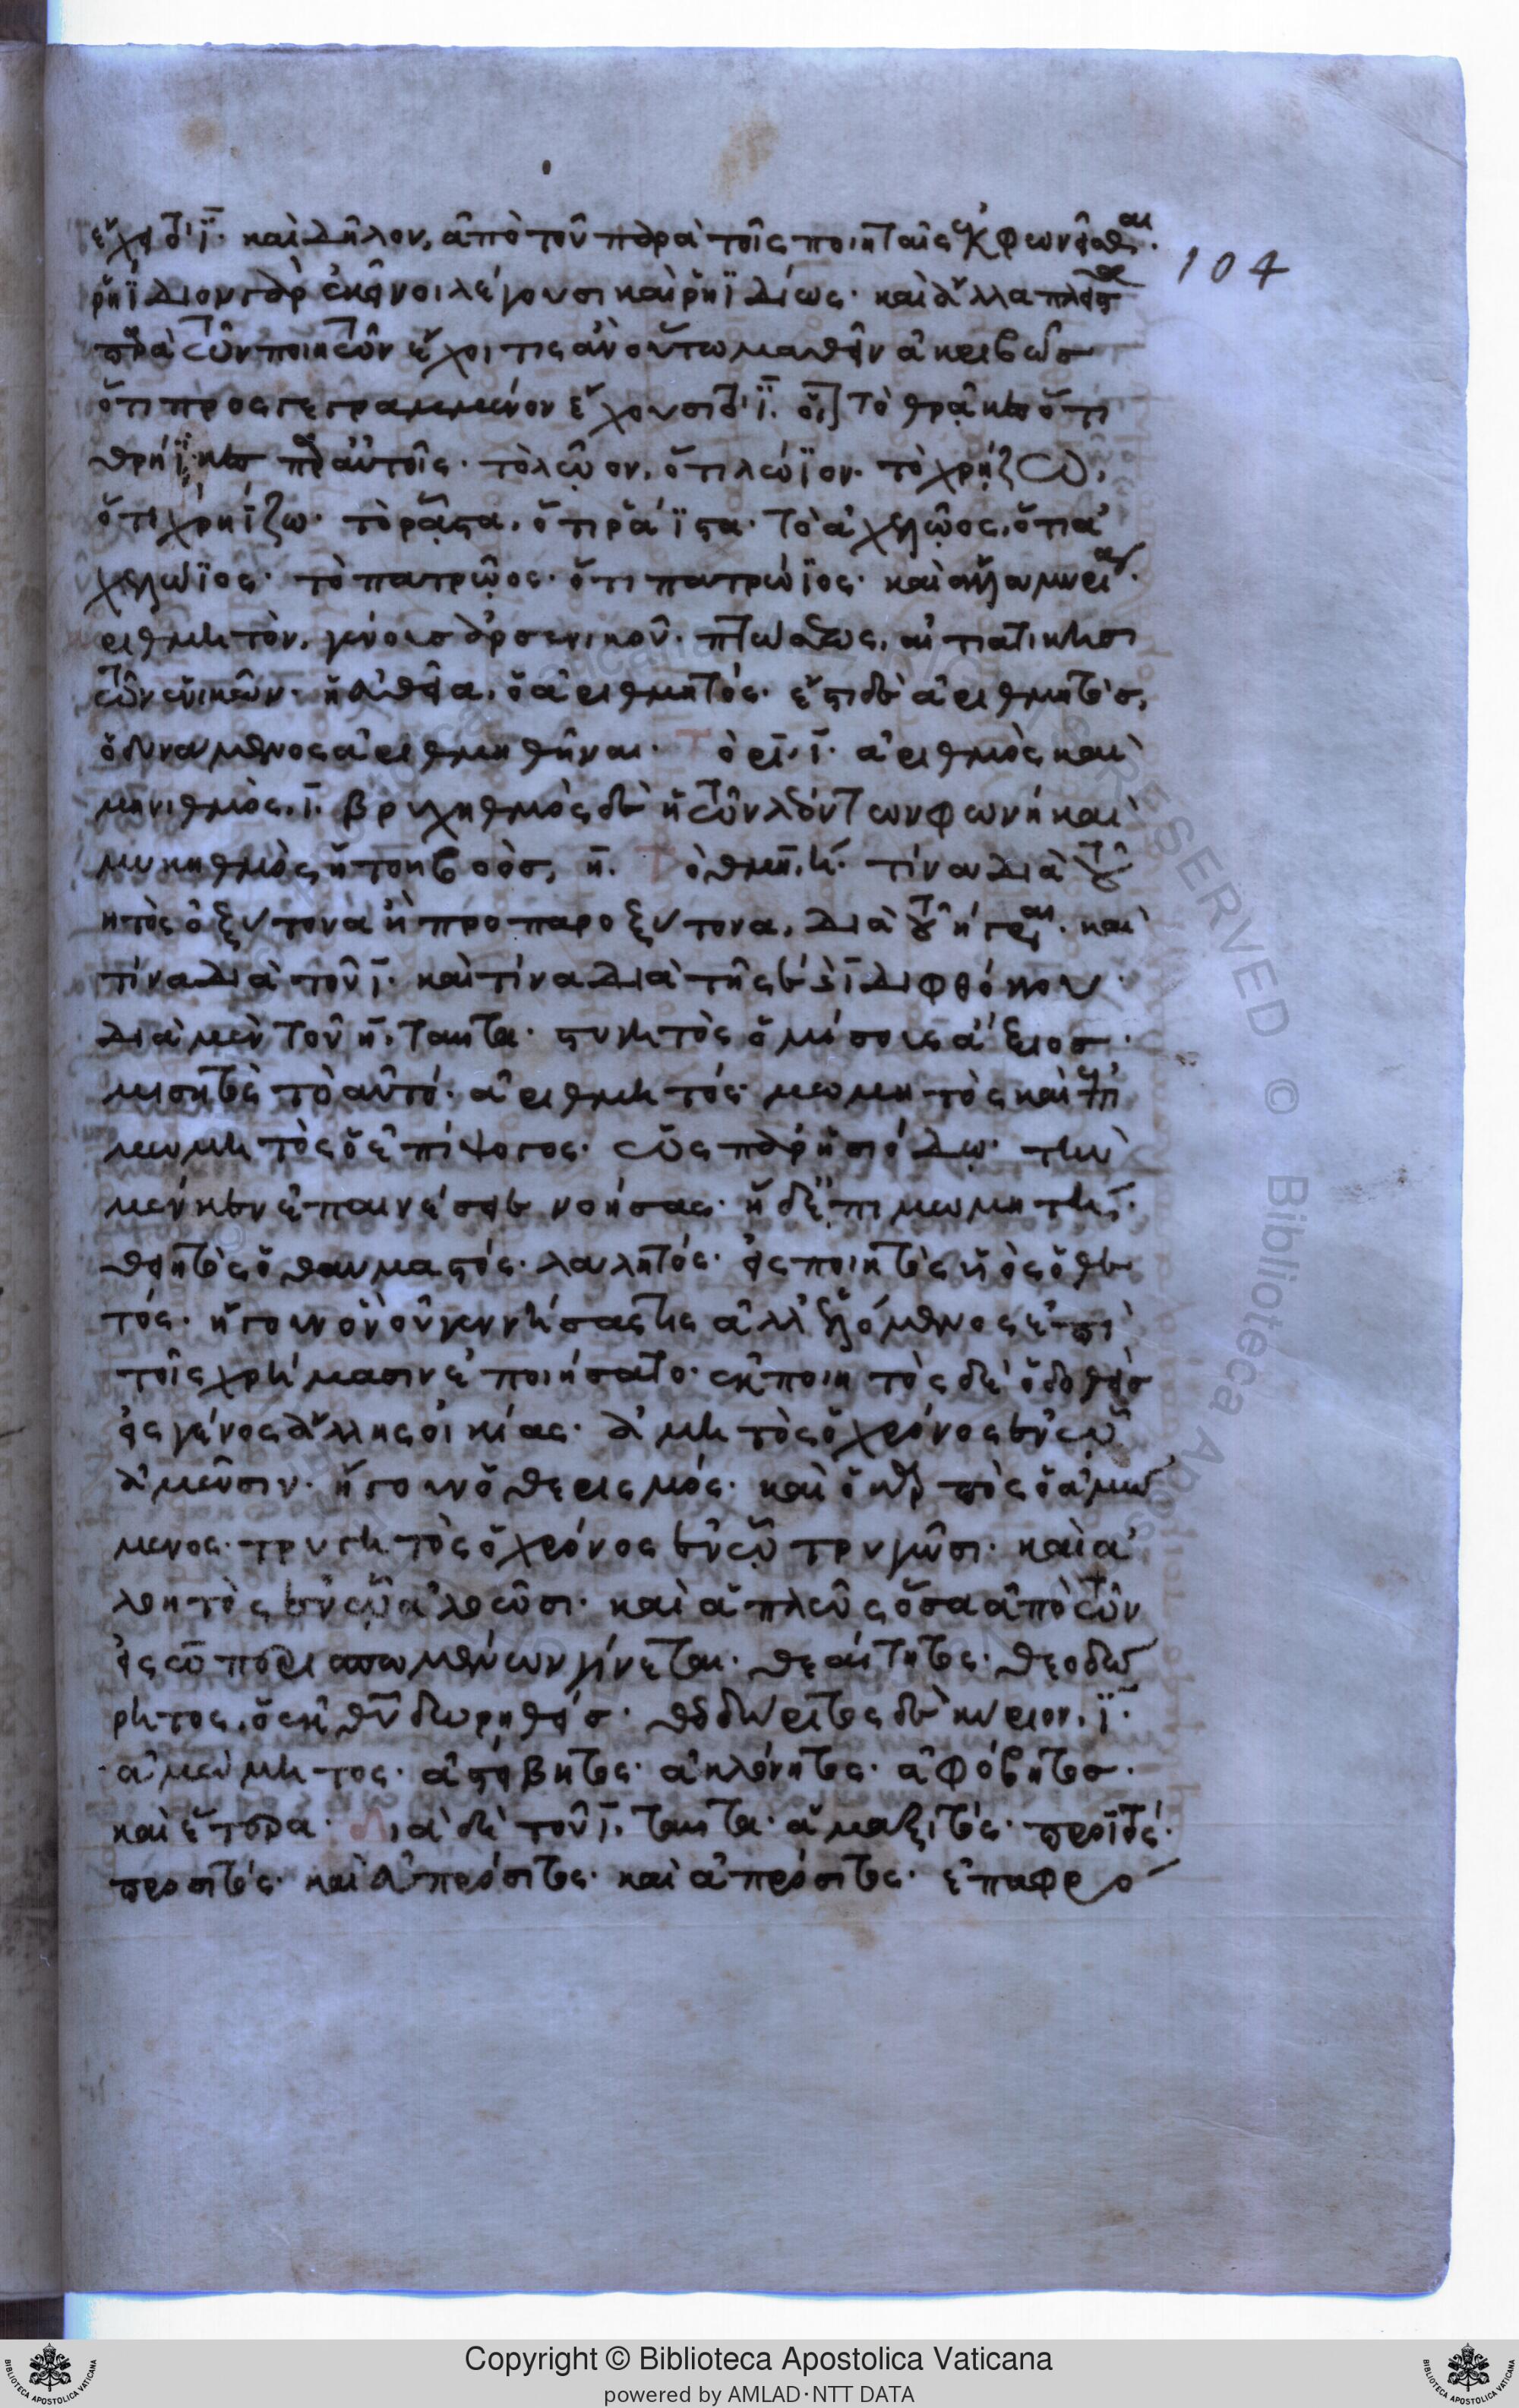 ἔχει τὸ ϊ. καὶ δῆλον, ἀπὸ τοῦ παρὰ τοῖς ποιηταῖς ἐκφωνεῖσθαι.
104
ῥηΐδιον γὰρ ἐκεῖνοι λέγουσι καὶ ῥηϊδίως. καὶ ἄλλα πλεῖστα
παρὰ τῶν ποιητῶν ἔχοι τις ἂν οὕτω μαθεῖν ἀκριβῶς
ὅτι προσγεγραμμένον ἔχουσι τὸ ϊ. τὸ θρᾷκες ὅτι
θρήϊκες παρ' αὐτοῖς. τὸ λῷον, ὅτι λώϊον. τὸ χρῄζω,
ὅτι χρηΐζω. τὸ ῥᾷστα, ὅτι ῥάϊστα. τὸ ἀχελῷος, ὅτι ἀ
χελώϊος. τὸ πατρῷος. ὅτι πατρώϊος. καὶ ἄλλα μυρία.
ἀριθμητὸν, γένους ἀρσενικοῦ. πτώσεως, αἰτιατικῆς
τῶν ἑνικῶν. ἡ εὐθεῖα, ὁ ἀριθμητός. ἔστι δὲ ἀριθμητὸς,
ὁ δυνάμενος ἀριθμηθῆναι. τὸ ρι, ϊ. ἀριθμὸς καὶ
μηνιθμὸς, ϊ. βρυχηθμὸς δὲ ἡ τῶν λεόντων φωνὴ καὶ
μυκηθμὸς ἡ τοῦ βοὸς, η. τὸ θμη, η. τίνα διὰ τοῦ
ητος ὀξύτονα ἢ προπαροξύτονα, διὰ τοῦ η γράφεται. καὶ
τίνα διὰ τοῦ ι. καὶ τίνα διὰ τῆς ει διφθόγγου.
διὰ μὲν τοῦ η, ταῦτα. στυγητὸς ὁ μίσους ἄξιος.
μισητὸς τὸ αὐτό. ἀριθμητός. μωμητὸς καὶ ἐπι
μωμητὸς ὁ ἐπίψογος. ὡς παρ' ἡσιόδῳ. τὴν
μέν κεν ἐπαινέσειε νοήσας. ἡ δ' ἐπιμωμητή.
θηητὸς ὁ θαυμαστός. λαλητός. εἰσποιητὸς υἱὸς ὁ θε
τός. ἤγουν ὃν οὐ γεννήσας τις ἀλλ' ἑλόμενος ἐπὶ
τοῖς χρήμασιν ἐποιήσατο. ἐκποιητὸς δὲ ὁ δοθεὶς
εἰς γένος ἄλλης οἰκίας. ἀμητὸς ὁ χρόνος ἐν ᾧ
ἀμῶσιν. ἤγουν ὁ θερισμός. καὶ ὁ καρπὸς ὁ ἀμώ
μενος. τρυγητὸς ὁ χρόνος ἐν ᾧ τρυγῶσι. καὶ ἀ
λοητὸς ἐν ᾧ ἀλοῶσι. καὶ ἁπλῶς ὅσα ἀπὸ τῶν
εἰς ῶ περισπωμένων γίνεται. θεαίτητος. θεοδώ
ρητος, ὁ ἐκ θεοῦ δωρηθείς. θεοδώριτος δὲ κύριον, ϊ.
ἀμώμητος. ἀτάρβητος. ἀκλόνητος. ἀφόβητος.
καὶ ἕτερα. διὰ δὲ τοῦ ι, ταῦτα. ἁμαξιτός. προϊτός.
προσιτός. καὶ ἀπρόσιτος. καὶ ἀπρόσιτος. ἐπαφρό
Copyright © Biblioteca Apostolica Vaticana
powered by AMLAD·NTT DATA